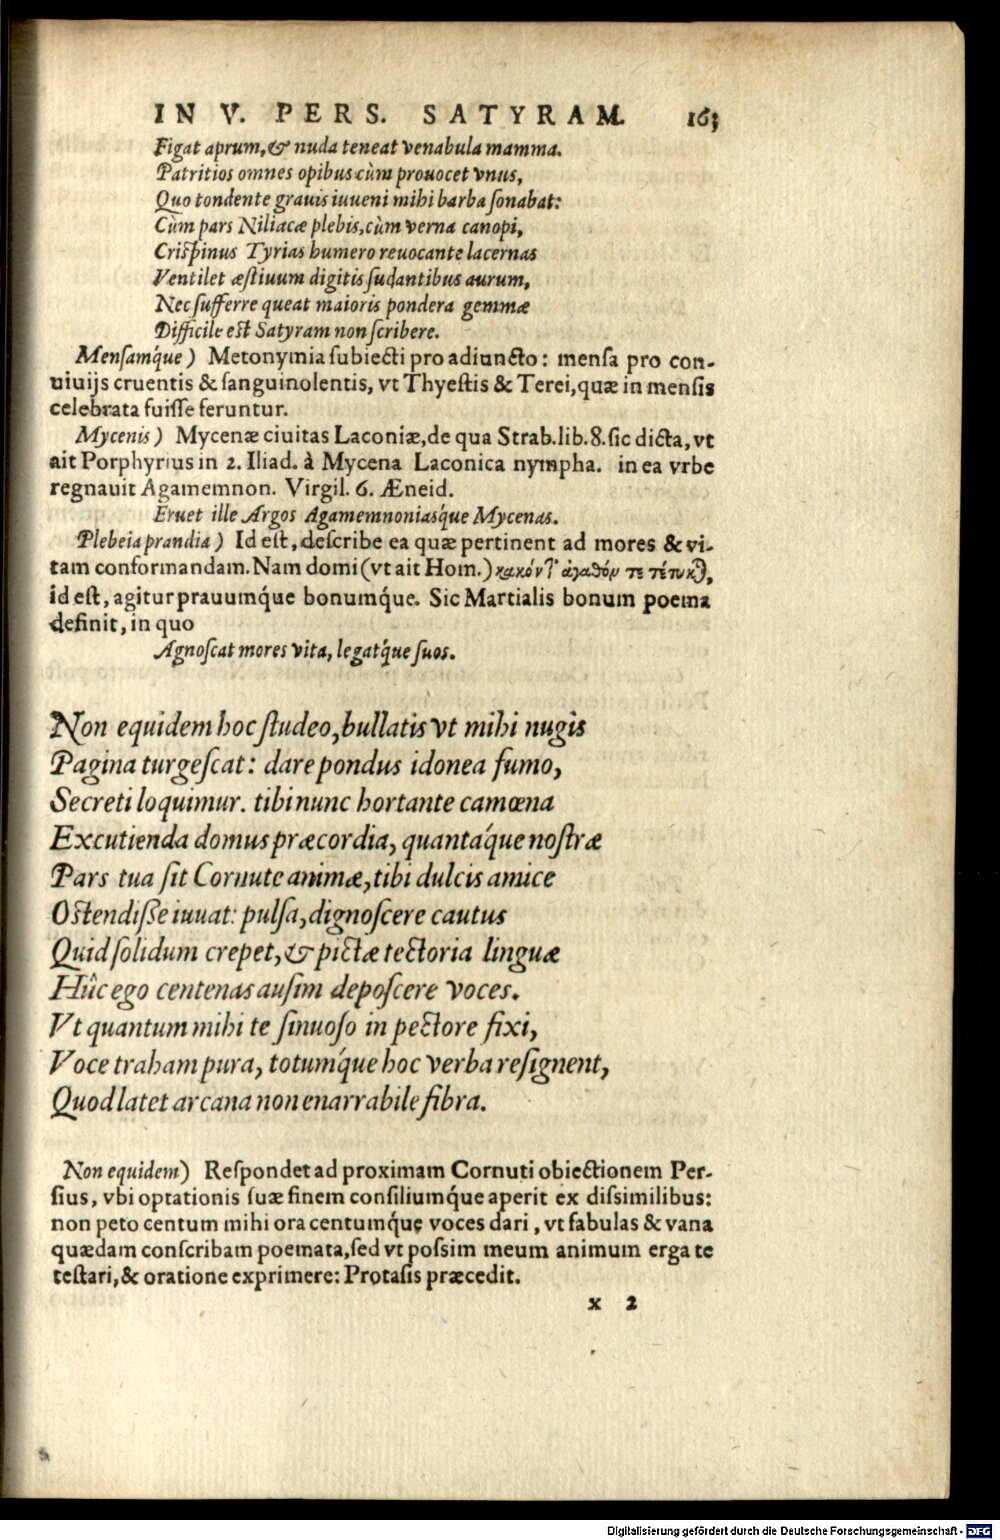 IN V. PERS. SATYRAM. 163
Figat aprum, & nuda teneat venabula mamma.
Patritios omnes opibus cùm prouocet vnus,
Quo tondente grauis iuueni mihi barba ſonabat:
Cùm pars Niliacæ plebis, cùm verna canopi,
Criſpinus Tyrias humero reuocante lacernas
Ventilet æſtiuum digitis ſudantibus aurum,
Nec ſufferre queat maioris pondera gemmæ
Difficile eſt Satyram non ſcribere.
Menſamq́ue) Metonymia ſubiecti pro adiuncto: menſa pro con-
uiuijs cruentis & ſanguinolentis, vt Thyeſtis & Terei, quæ in menſis
celebrata fuiſſe feruntur.
Mycenis) Mycenæ ciuitas Laconiæ, de qua Strab. lib. 8. ſic dicta, vt
ait Porphyrius in 2. Iliad. à Mycena Laconica nympha. in ea vrbe
regnauit Agamemnon. Virgil. 6. Æneid.
Eruet ille Argos Agamemnoniasq́ue Mycenas.
Plebeia prandia) Id eſt, deſcribe ea quæ pertinent ad mores & vi-
tam conformandam. Nam domi (vt ait Hom.) κακόν τ' ἀγαθόν τε τέτυκται,
id eſt, agitur prauumq́ue bonumq́ue. Sic Martialis bonum poema
definit, in quo
Agnoſcat mores vita, legatq́ue ſuos.
Non equidem hoc ſtudeo, bullatis vt mihi nugis
Pagina turgeſcat: dare pondus idonea fumo,
Secreti loquimur. tibi nunc hortante camœna
Excutienda domus præcordia, quantaq́ue noſtræ
Pars tua ſit Cornute animæ, tibi dulcis amice
Oſtendiſſe iuuat: pulſa, dignoſcere cautus
Quid ſolidum crepet, & pictæ tectoria linguæ
Hûc ego centenas auſim depoſcere voces.
Vt quantum mihi te ſinuoſo in pectore fixi,
Voce traham pura, totumq́ue hoc verba reſignent,
Quod latet arcana non enarrabile fibra.
Non equidem) Reſpondet ad proximam Cornuti obiectionem Per-
ſius, vbi optationis ſuæ finem conſiliumq́ue aperit ex diſsimilibus:
non peto centum mihi ora centumq́ue voces dari, vt fabulas & vana
quædam conſcribam poemata, ſed vt poſsim meum animum erga te
teſtari, & oratione exprimere: Protaſis præcedit.
x 2
Digitalisierung gefördert durch die Deutsche Forschungsgemeinschaft - DFG